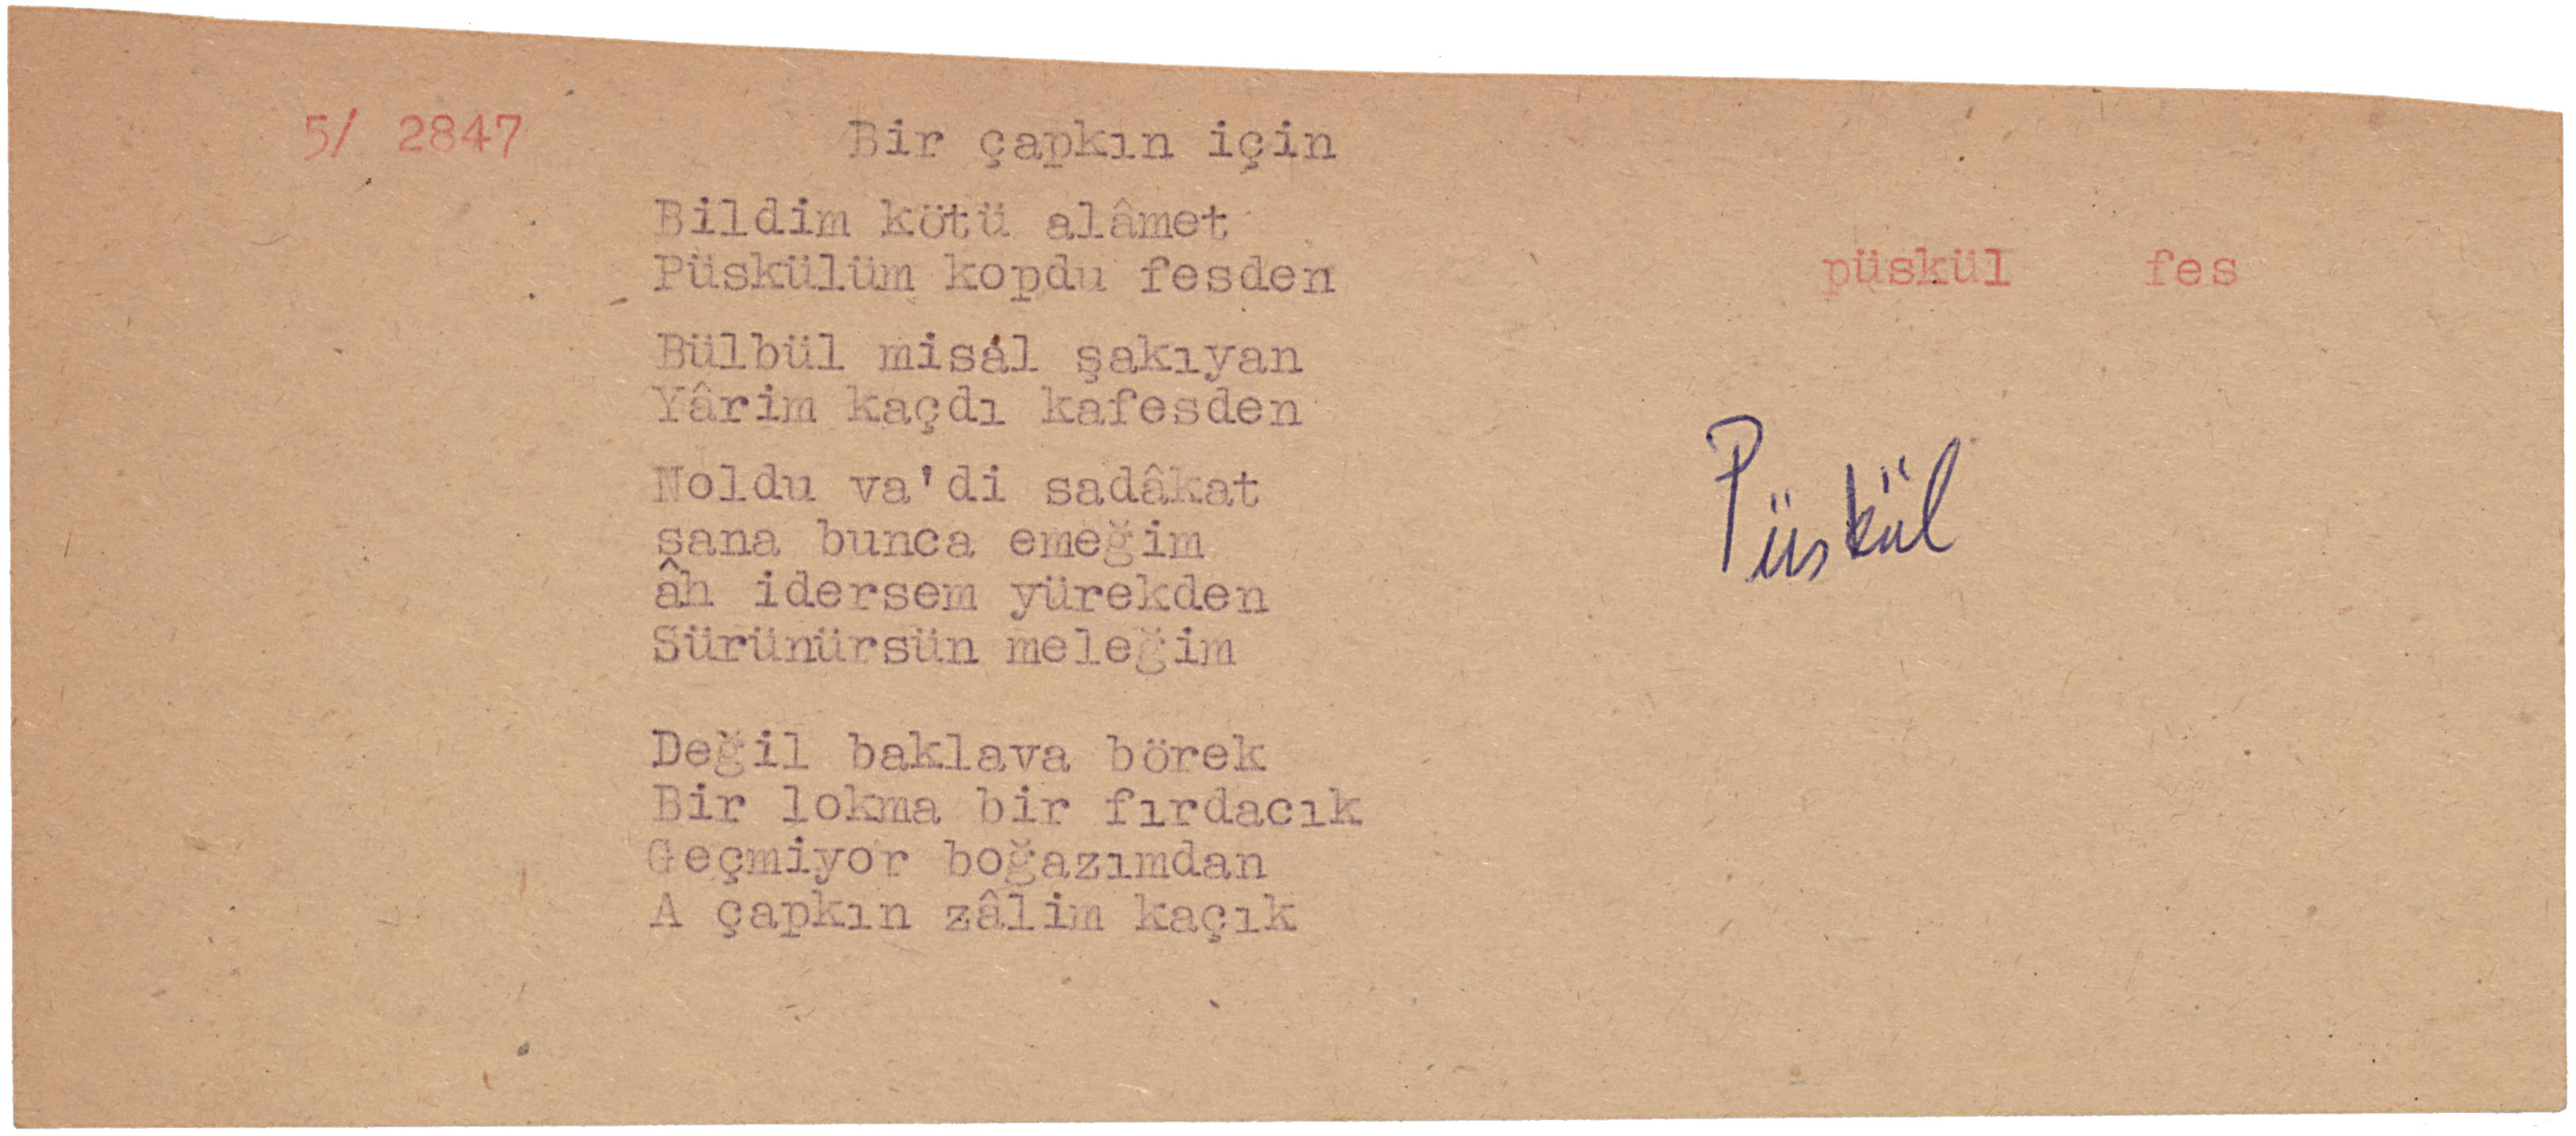 5/ 2847 Bir çapkın için
Bildim kötü alâmet
Püskülüm kopdu fesden püskül fes
Bülbül misâl şakıyan
Yârim kaçdı kafesden
Noldu va'di sadâkat
sana bunca emeğim
âh idersem yürekden
Sürünürsün meleğim
Püskül
Değil baklava börek
Bir lokma bir fırdacık
Geçmiyor boğazımdan
A çapkın zâlim kaçık